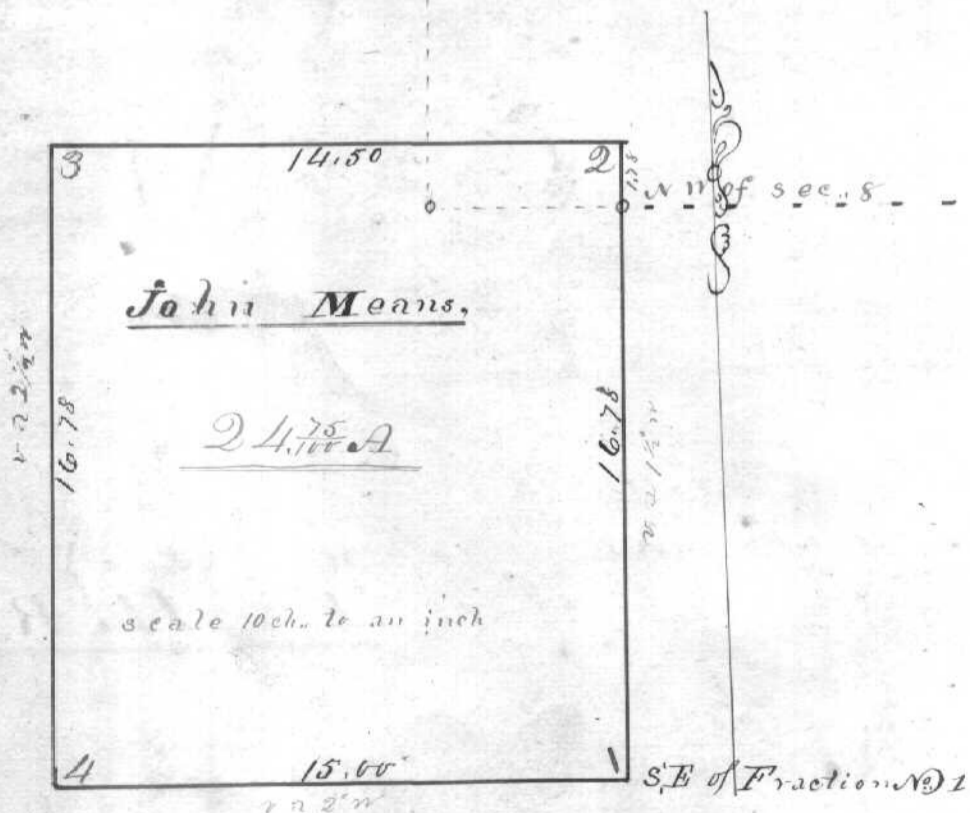 3
14.50
2
1.78
N W of sec. 8
John Means,
24.75/100 A
16.78
16.78
scale 10 ch. to an inch
4
15.00
1
S.E of Fraction No 1